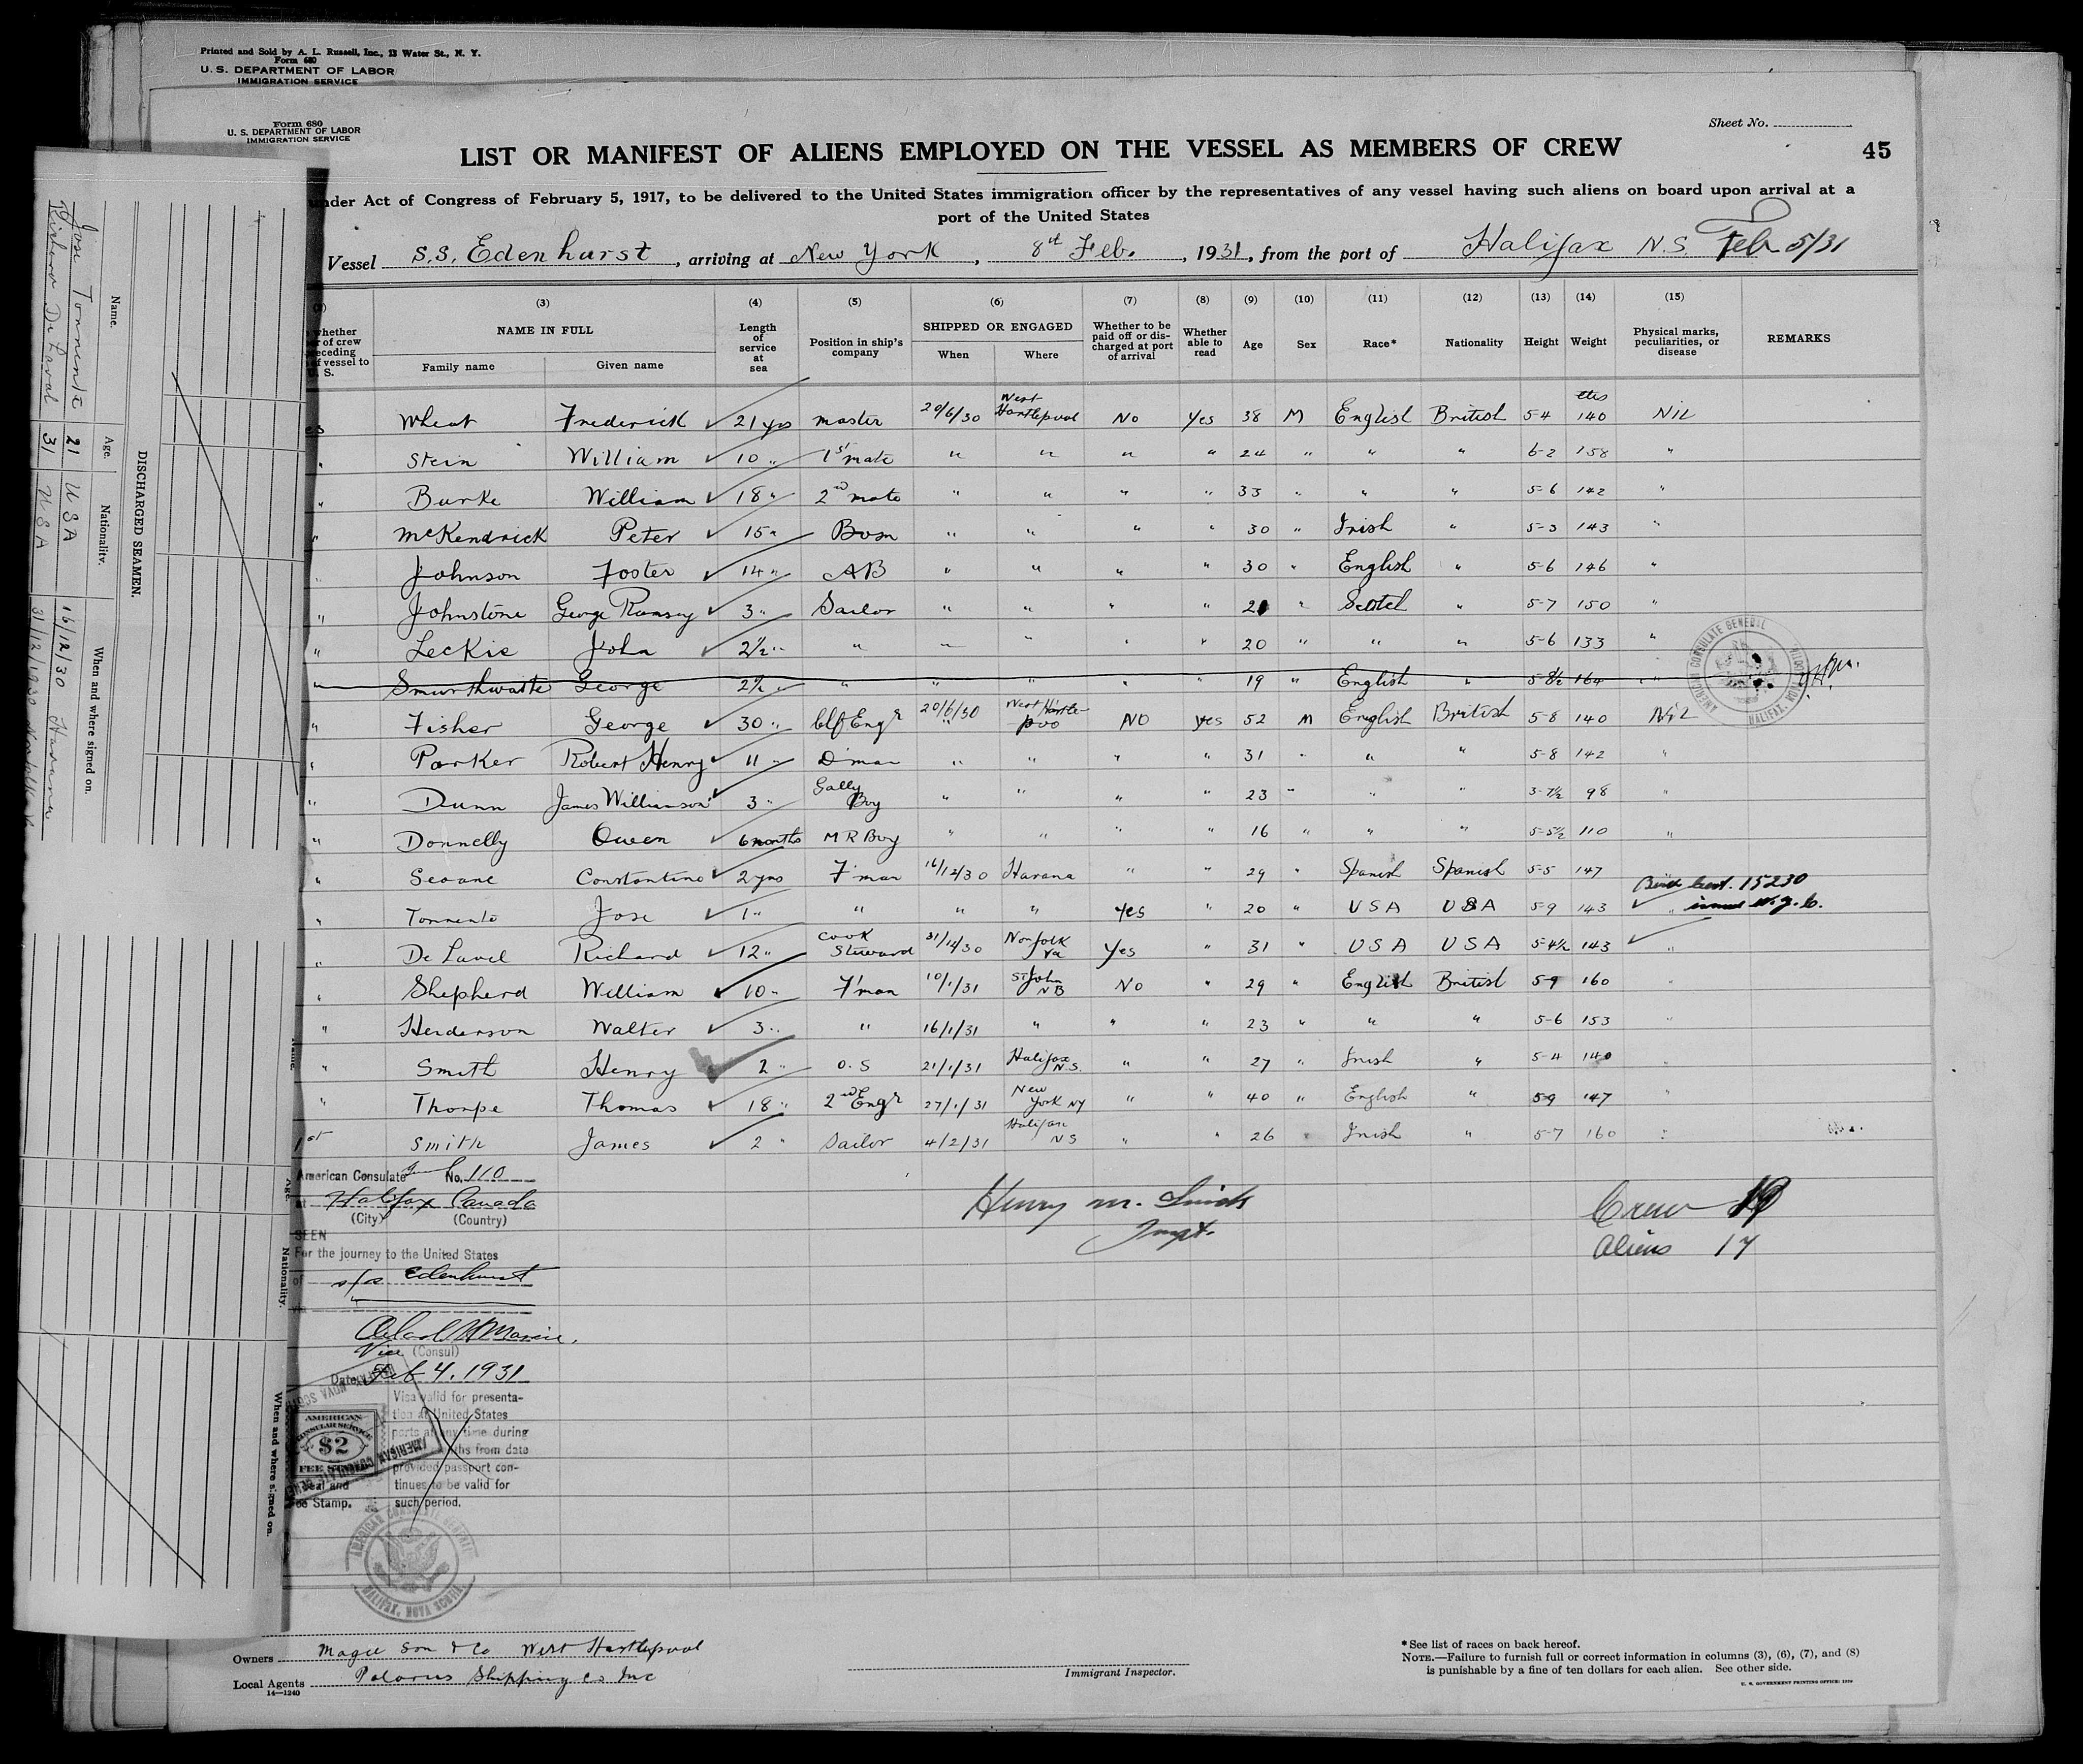 Printed and Sold by A. L. Russell, Inc., 13 Water St., N. Y.
Form 680
U. S. DEPARTMENT OF LABOR
IMMIGRATION SERVICE
Form 680
U. S. DEPARTMENT OF LABOR
IMMIGRATION SERVICE
Sheet No.
LIST OR MANIFEST OF ALIENS EMPLOYED ON THE VESSEL AS MEMBERS OF CREW
45
under Act of Congress of February 5, 1917, to be delivered to the United States immigration officer by the representatives of any vessel having such aliens on board upon arrival at a
port of the United States
Vessel S.S. Edenhurst, arriving at New York, 8th Feb., 1931, from the port of Halifax N.S. Feb 5/31
(3) (4) (5) (6) (7) (8) (9) (10) (11) (12) (13) (14) (15)
whether of crew preceding of vessel to U. S.
NAME IN FULL
Family name Given name
Length of service at sea
Position in ship's company
SHIPPED OR ENGAGED
When Where
Whether to be paid off or discharged at port of arrival
Whether able to read
Age Sex Race* Nationality Height Weight
Physical marks, peculiarities, or disease
REMARKS
Wheat Frederick ✓ 21 yrs master 20/6/30 West Hartlepool No Yes 38 M English British 5-4 140 Nil
" Stein William ✓ 10 " 1st mate " " " " 24 " " " 6-2 158 "
" Burke William ✓ 18 " 2nd mate " " " " 33 " " " 5-6 142 "
" McKendrick Peter ✓ 15 " Bosn " " " " 30 " Irish " 5-3 143 "
" Johnson Foster ✓ 14 " AB " " " " 30 " English " 5-6 146 "
" Johnstone George Ramsey ✓ 3 " Sailor " " " " 21 " Scotch " 5-7 150 "
" Leckie John ✓ 2½ " " " " " " 20 " " " 5-6 133 "
" Smurthwaite George 2½ " " " " " " 19 " English " 5-8½ 164 "
" Fisher George ✓ 30 " Chf Engr 20/6/30 West Hartlepoo NO yes 52 M English British 5-8 140 Nil
" Parker Robert Henry ✓ 11 " D'man " " " " 31 " " " 5-8 142 "
" Dunn James Williamson 3 " Gally Boy " " " " 23 " " " 3-7½ 98 "
" Donnelly Owen ✓ 6 months M R Boy " " " " 16 " " " 5-5½ 110 "
" Seoane Constantino ✓ 2 yrs F'man 16/12/30 Havana " " 29 " Spanish Spanish 5-5 147
" Tormento Jose ✓ 1 " " " " Yes " 20 " U S A U S A 5-9 143 ✓ "
Birth Cert. 15230
issued
" De Lavel Richard ✓ 12 " Cook Steward 31/12/30 Norfolk Va Yes " 31 " U S A U S A 5-4½ 143 ✓ "
" Shepherd William ✓ 10 " F'man 10/1/31 St John NB No " 29 " English British 5-9 160 "
" Henderson Walter ✓ 3 " " 16/1/31 " " " 23 " " " 5-6 153 "
" Smith Henry ✓ 2 " O.S 21/1/31 Halifax N.S. " " 27 " Irish " 5-4 140 "
" Thorpe Thomas ✓ 18 " 2nd Engr 27/1/31 New York NY " " 40 " English " 5-9 147 "
1st Smith James ✓ 2 " Sailor 4/2/31 Halifax NS " " 26 " Irish " 5-7 160 "
American Consulate No. 110
at Halifax Canada
(City) (Country)
SEEN
For the journey to the United States
of s/s Edenhurst
Vice (Consul)
Date Feb 4, 1931
Visa valid for presenta-
tion at United States
ports at any time during
ths from date
provided passport con-
tinues to be valid for
such period.
AMERICAN
CONSULAR SERVICE
$2
FEE STAMP
Seal and
Fee Stamp.
AMERICAN CONSULATE GENERAL
HALIFAX, NOVA SCOTIA
Henry M. Smith
Inspt.
Crew 19
Aliens 17
AMERICAN CONSULATE GENERAL
HALIFAX, NOVA SCOTIA
Owners Magee Son & Co West Hartlepool
Local Agents Polarus Shipping Co Inc
14—1240
Immigrant Inspector.
*See list of races on back hereof.
NOTE.—Failure to furnish full or correct information in columns (3), (6), (7), and (8)
is punishable by a fine of ten dollars for each alien. See other side.
DISCHARGED SEAMEN.
Name. Age. Nationality. When and where signed on.
Jose Tormento 21 U S A 16/12/30 Havana
Richard De Laval 31 U S A 31/12/1930
Name. Age. Nationality. When and where signed on.